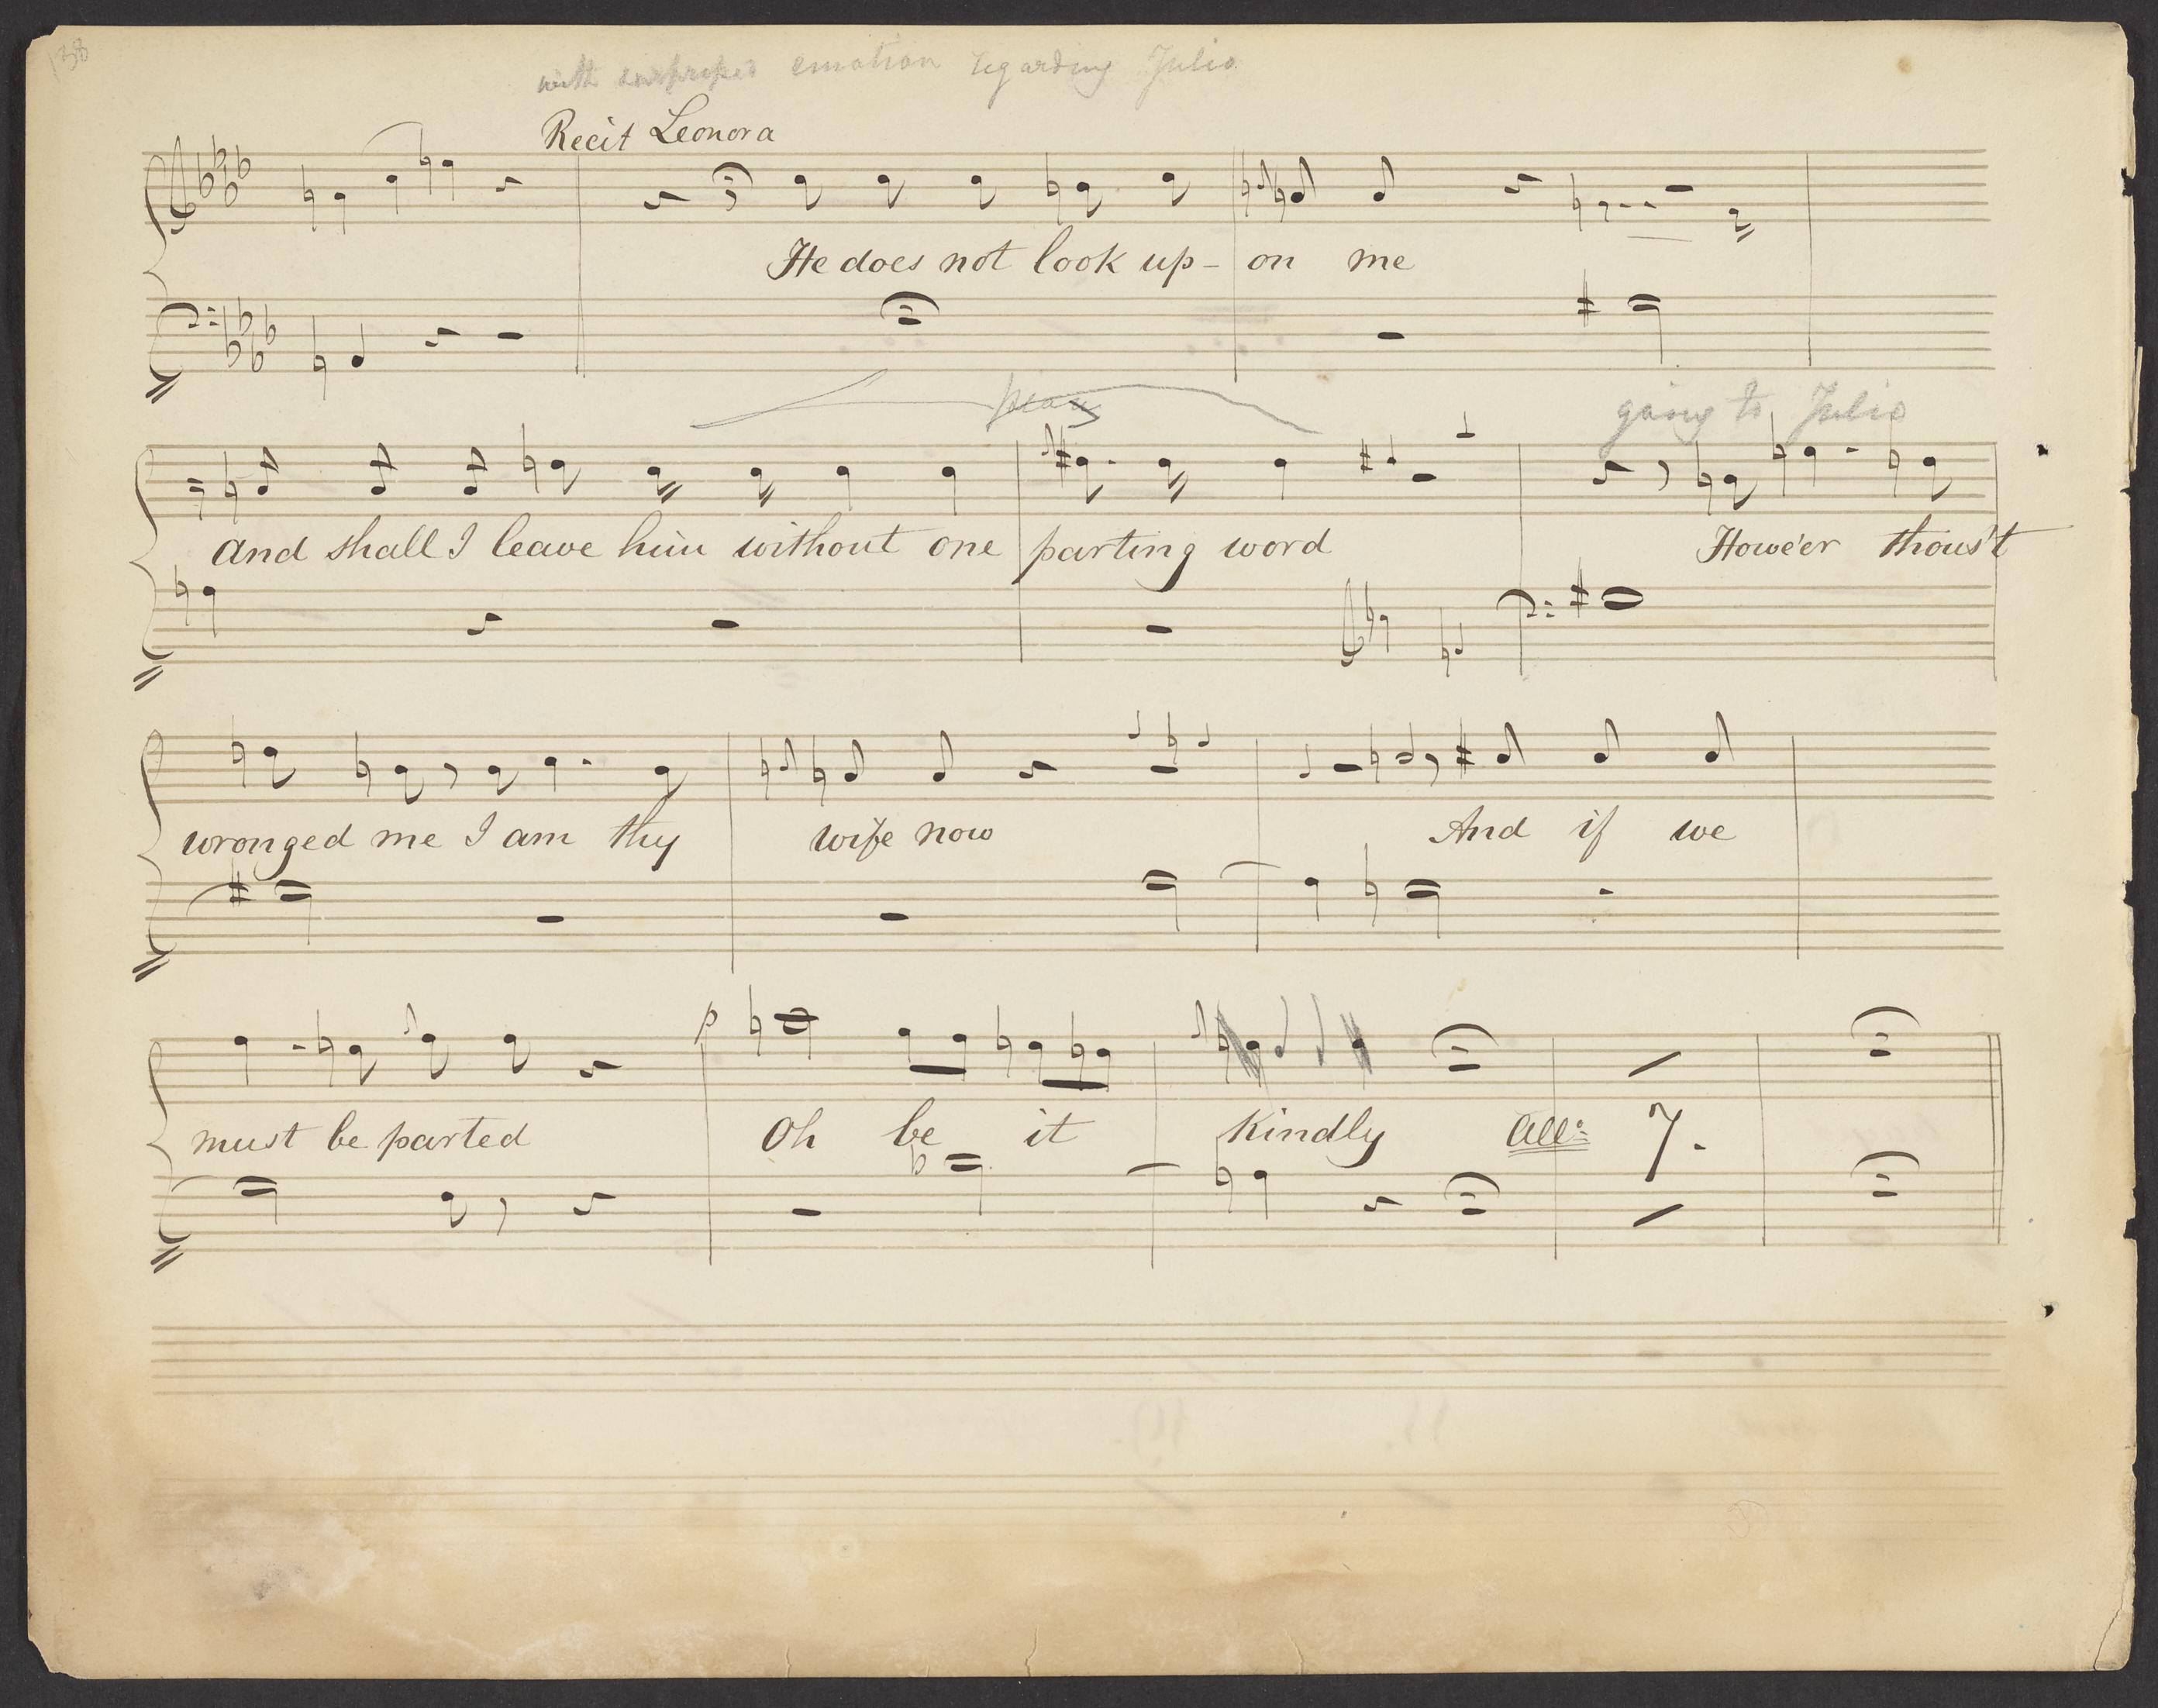 138
with suppressed emotion regarding Julio
Recit Leonora
He does not look up - on me
going to Julio
and shall I leave him without one parting word Howe'er thous't
wronged me I am thy wife now And if we
p
must be parted Oh be it kindly All: 7.